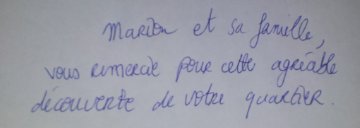 Marion et sa famille,
vous remercie pour cette agréable
découverte de votre quartier.